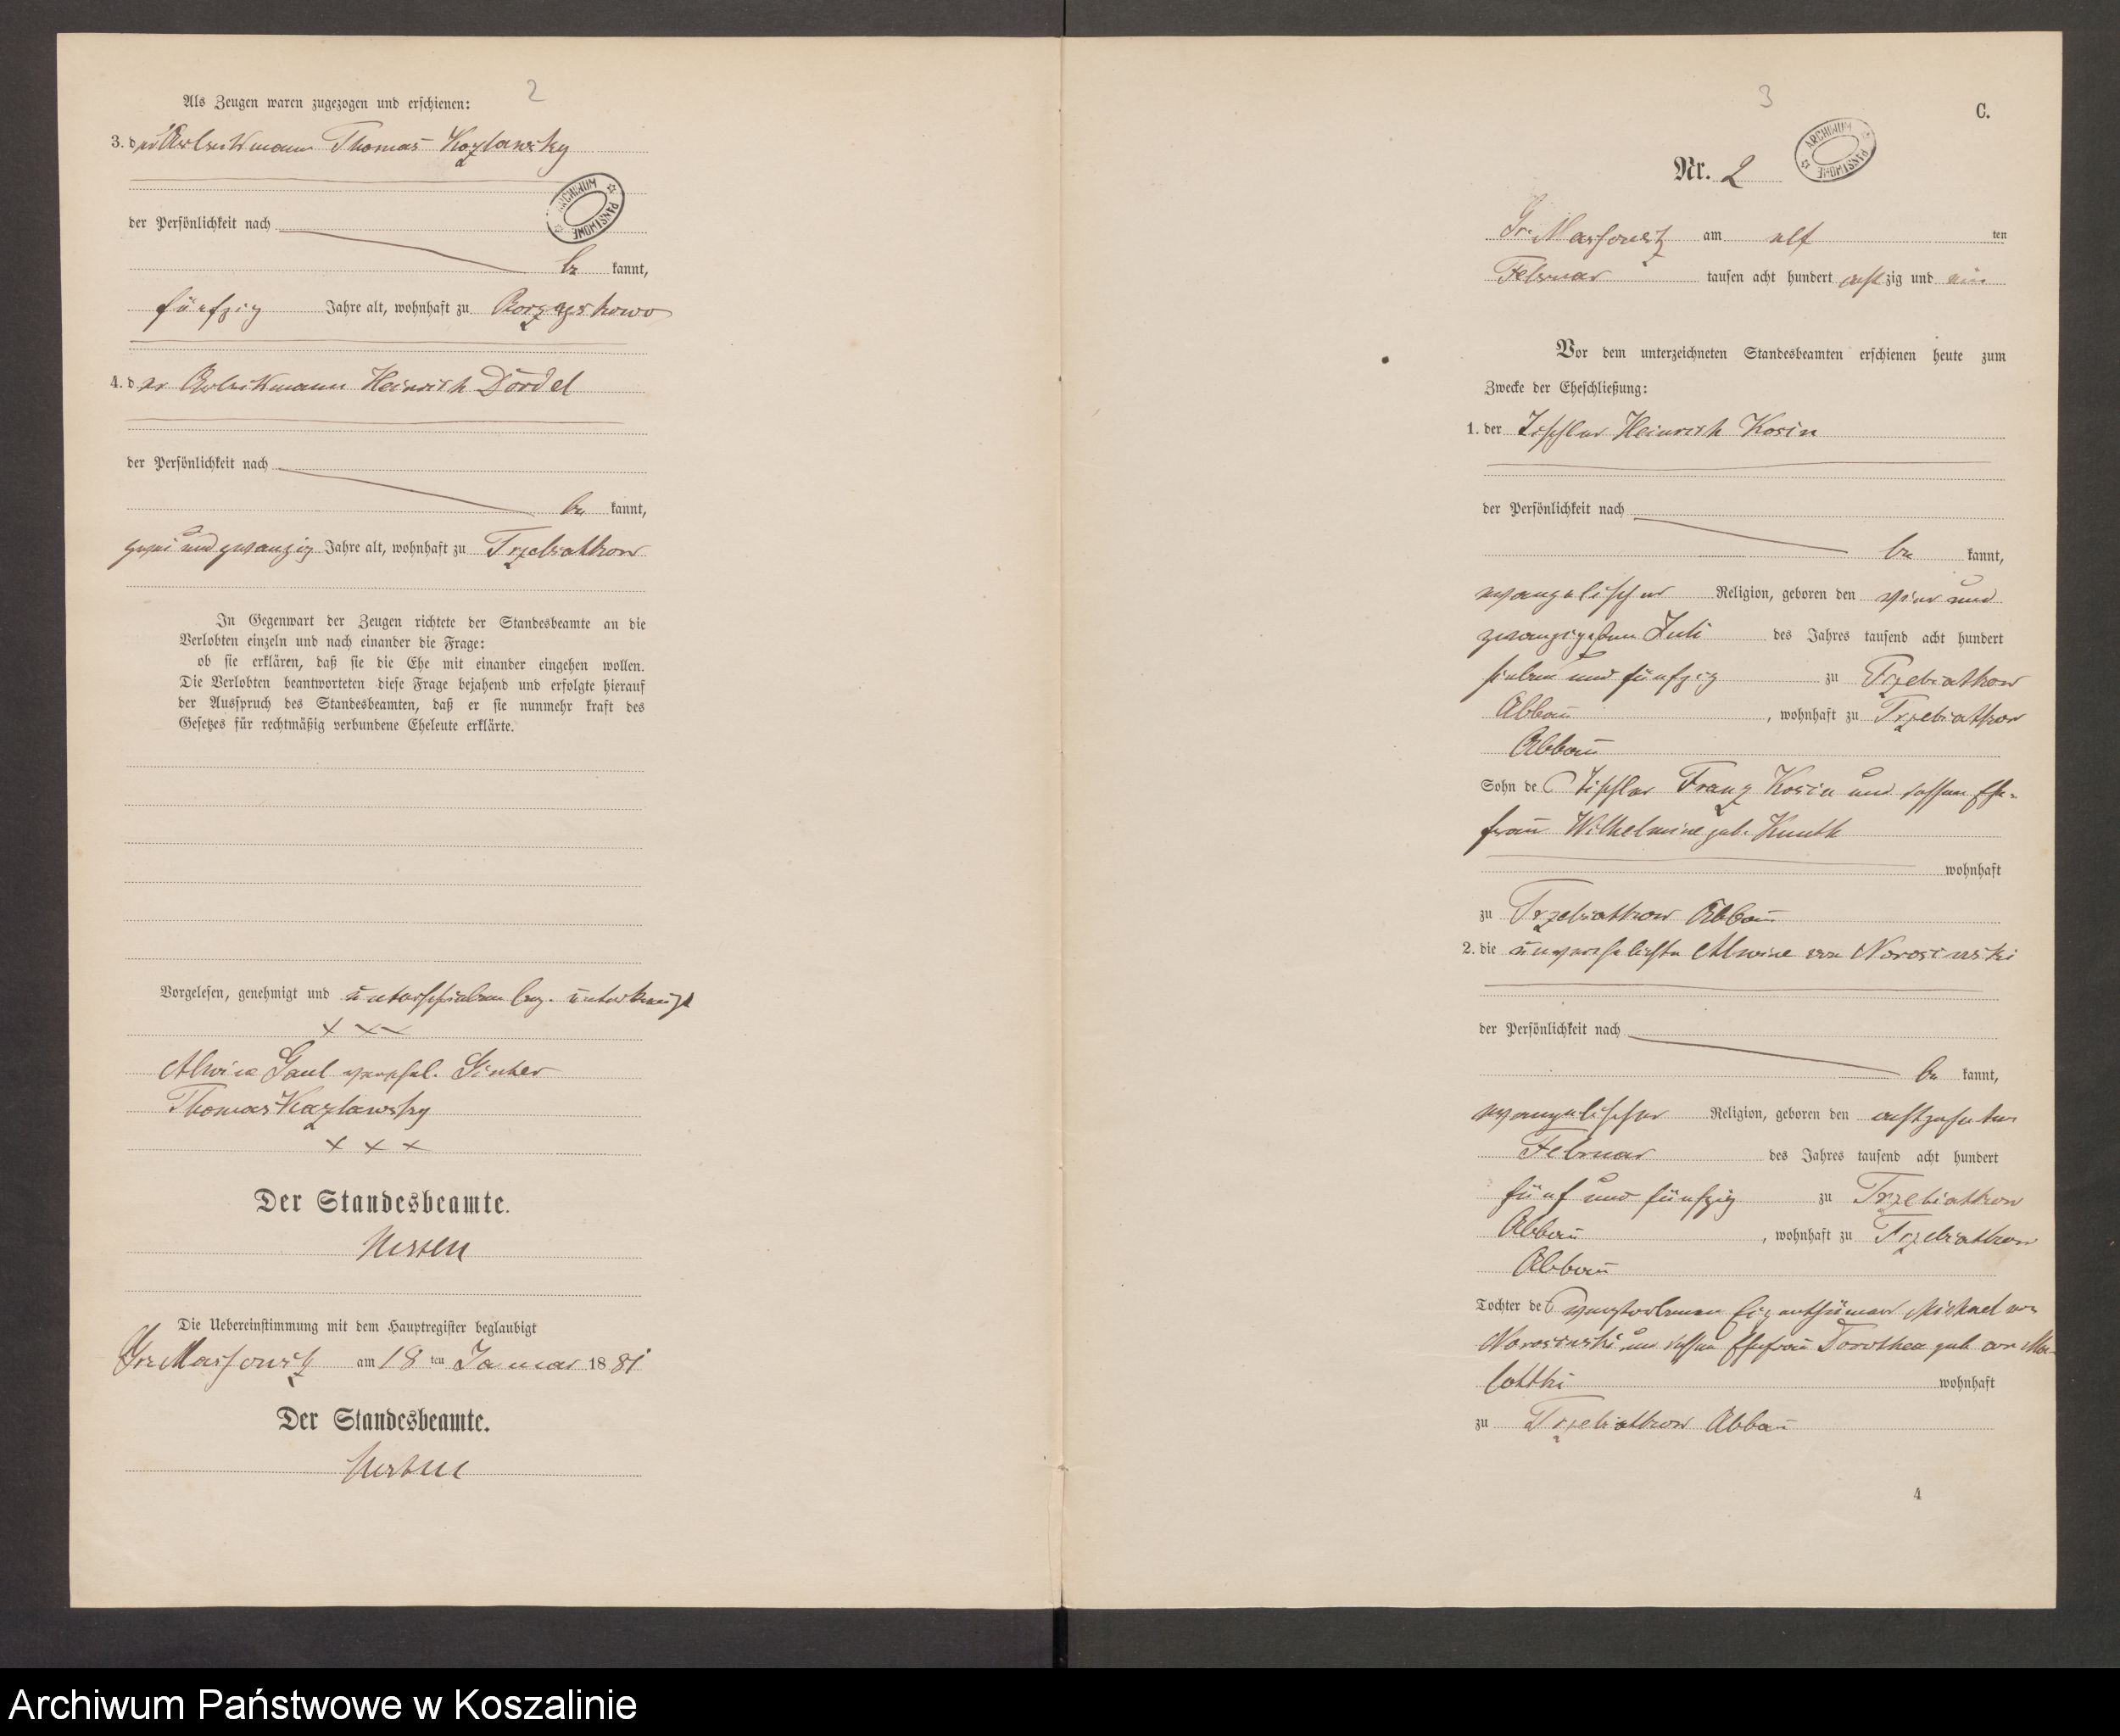 2
Als Zeugen waren zugezogen und erschienen:
3. der Arbeitsmann Thomas Kozlawsky
ARCHIWUM PAŃSTWOWE
der Persönlichkeit nach
be kannt,
fünfzig Jahre alt, wohnhaft zu Borzyskowo
4. der Arbeitsmann Heinrich Dördel
der Persönlichkeit nach
be kannt,
zwei und zwanzig Jahre alt, wohnhaft zu Trzebiatkow
In Gegenwart der Zeugen richtete der Standesbeamte an die
Verlobten einzeln und nach einander die Frage:
ob sie erklären, daß sie die Ehe mit einander eingehen wollen.
Die Verlobten beantworteten diese Frage bejahend und erfolgte hierauf
der Ausspruch des Standesbeamten, daß er sie nunmehr kraft des
Gesetzes für rechtmäßig verbundene Eheleute erklärte.
Vorgelesen, genehmigt und unterschrieben bez. unterkreuzt
× × ×
Alwine Gaul verehel.
Thomas Kazlawsky
× × ×
Der Standesbeamte.
Die Uebereinstimmung mit dem Hauptregister beglaubigt
Gr. Massowitz am 18 ten Januar 18 81
Der Standesbeamte.
3
C.
ARCHIWUM PAŃSTWOWE
Nr. 2
Gr. Massowitz am elf ten
Februar tausen acht hundert acht zig und ein
Vor dem unterzeichneten Standesbeamten erschienen heute zum
Zwecke der Eheschließung:
1. der Tischler Heinrich Kosin
der Persönlichkeit nach
be kannt,
evangelischer Religion, geboren den vier und
zwanzigsten Juli des Jahres tausend acht hundert
sieben und fünfzig zu Trzebiatkow
Abbau, wohnhaft zu Trzebiatkow
Abbau
Sohn des Tischler Franz Kosin und dessen Ehe-
frau Wilhelmine geb. Kuuth
wohnhaft
zu Trzebiatkow Abbau
2. die unverehelichte Alwine von Norosinski
der Persönlichkeit nach
be kannt,
evangelischer Religion, geboren den achtzehnten
Februar des Jahres tausend acht hundert
fünf und fünfzig zu Trzebiatkow
Abbau, wohnhaft zu Trzebiatkow
Abbau
Tochter des verstorbenen Eigenthümer Michael von
Norosinski und dessen Ehefrau Dorothea geb. von Ma-
lottki wohnhaft
zu Trzebiatkow Abbau
4
Archiwum Państwowe w Koszalinie